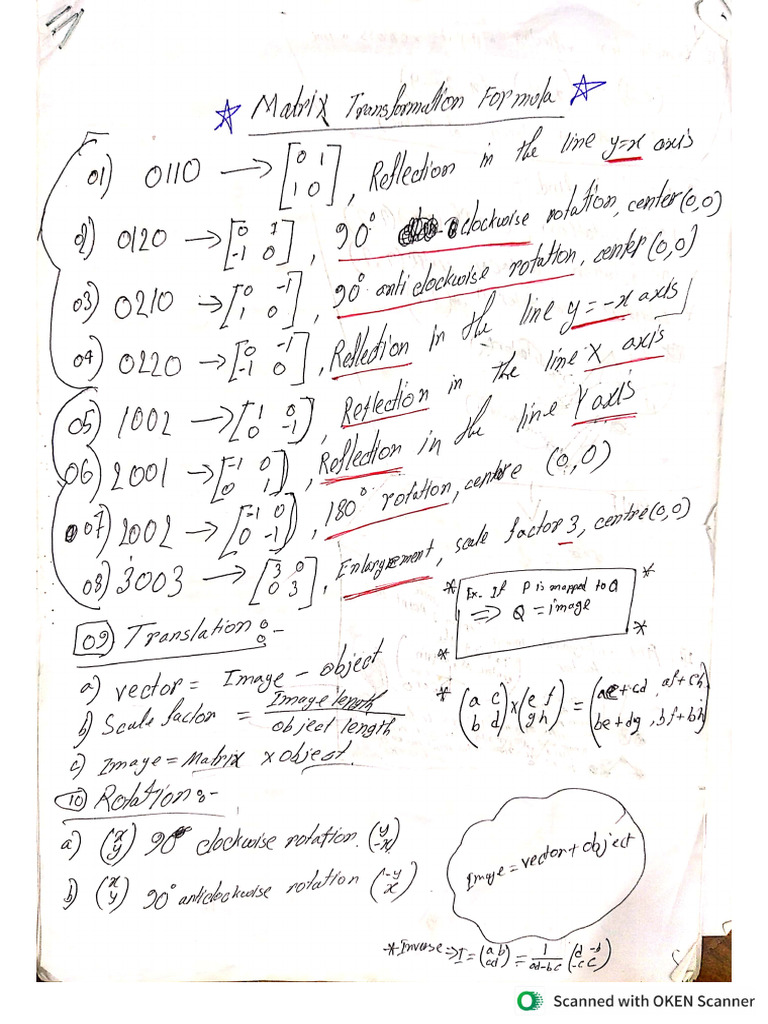 ☆ Matrix Transformation Formula ☆
01) 0110 → [0 1 / 1 0], Reflection in the line y=x axis
02) 0120 → [0 1 / -1 0], 90° clockwise rotation, center(0,0)
03) 0210 → [0 -1 / 1 0], 90° anti clockwise rotation, center(0,0)
04) 0220 → [0 -1 / -1 0], Reflection in the line y=-x axis
05) 1002 → [1 0 / 0 -1), Reflection in the line X axis
06) 2001 → [-1 0 / 0 1), Reflection in the line Y axis
07) 2002 → [-1 0 / 0 -1), 180° rotation, centre (0,0)
08) 3003 → [3 0 / 0 3], Enlargement, scale factor 3, centre(0,0)
* Ex- If P is mapped to Q *
⇒ Q = image
* *
09) Translation:-
a) vector = Image - object
b) Scale factor = Image length / object length
c) Image = Matrix x object.
* (a c / b d) x (e f / g h) = (ae+cd, af+ch / be+dg, bf+bh)
10) Rotation:-
a) (x / y) 90° clockwise rotation. (y / -x)
b) (x / y) 90° anticlockwise rotation (-y / x)
Image = vector + object
* Inverse ⇒ I = (a b / c d) = 1 / ad-bc (d -b / -c c)
Scanned with OKEN Scanner